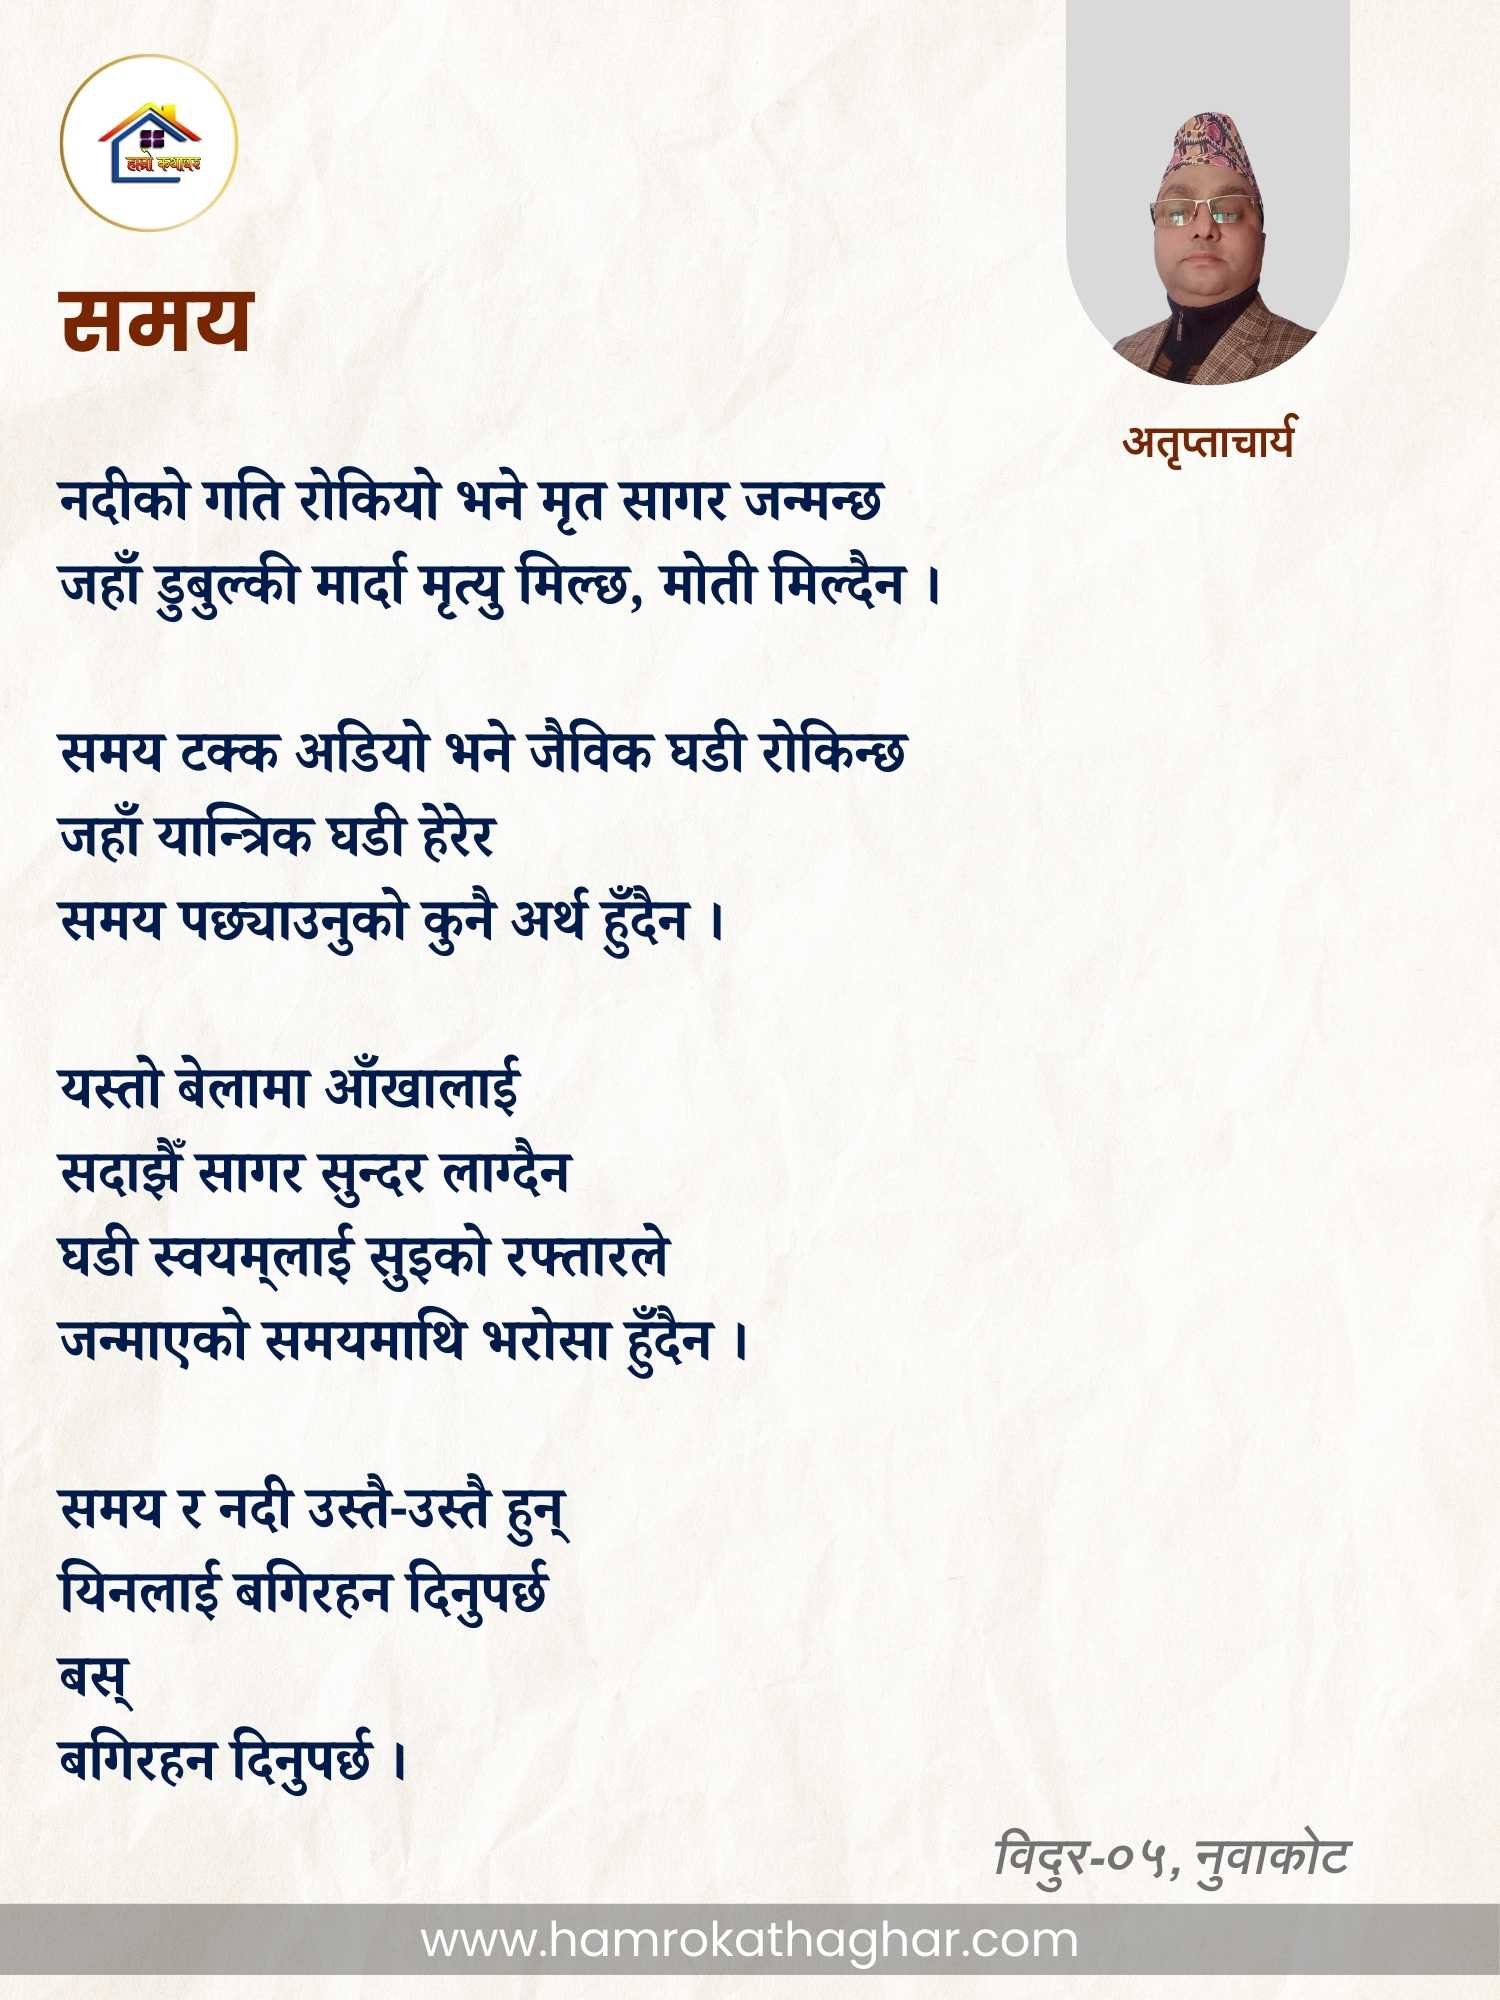 हाम्रो कथाघर
समय
अतृप्ताचार्य
नदीको गति रोकियो भने मृत सागर जन्मन्छ
जहाँ डुबुल्की मार्दा मृत्यु मिल्छ, मोती मिल्दैन ।
समय टक्क अडियो भने जैविक घडी रोकिन्छ
जहाँ यान्त्रिक घडी हेरेर
समय पछ्याउनुको कुनै अर्थ हुँदैन ।
यस्तो बेलामा आँखालाई
सदाझैँ सागर सुन्दर लाग्दैन
घडी स्वयम्‌लाई सुइको रफ्तारले
जन्माएको समयमाथि भरोसा हुँदैन ।
समय र नदी उस्तै-उस्तै हुन्
यिनलाई बगिरहन दिनुपर्छ
बस्
बगिरहन दिनुपर्छ ।
विदुर-०५, नुवाकोट
www.hamrokathaghar.com